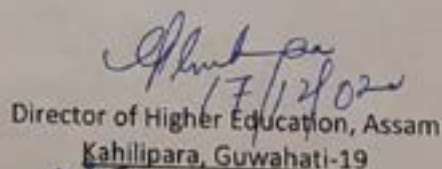 17/12/020
Director of Higher Education, Assam
Kahilipara, Guwahati-19